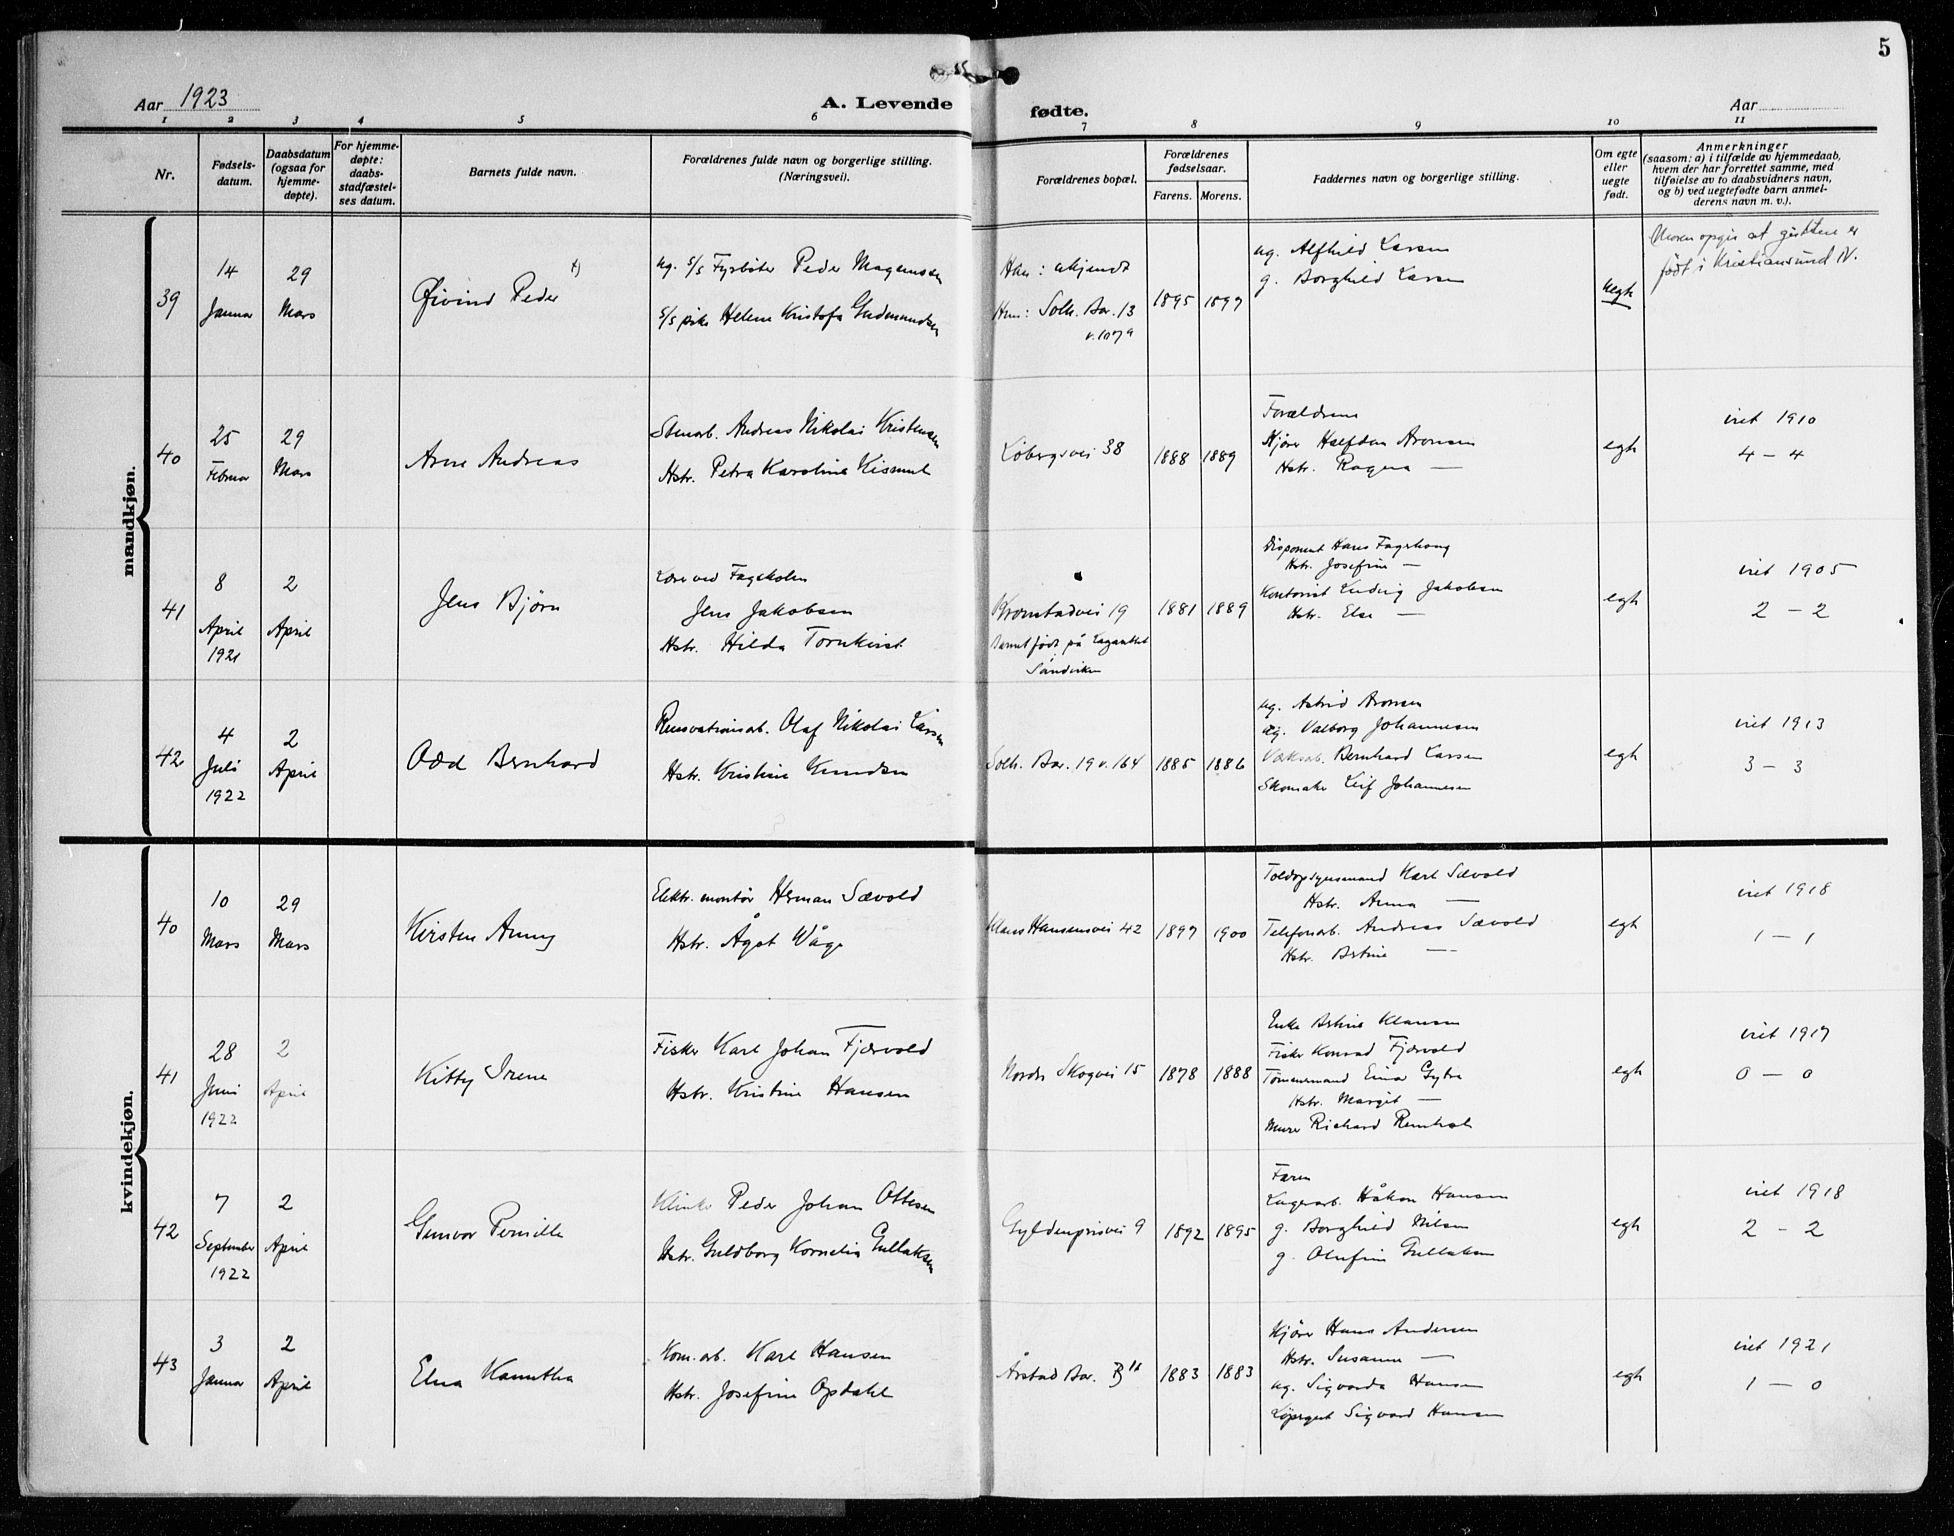 5
Aar 1923
A. Levende
fødte.
Aar
1 2 3 4 5 6 7 8 9 10 11
Nr.
Fødsels-
datum.
Daabsdatum
(ogsaa for
hjemme-
døpte).
For hjemme-
døpte:
daabs-
stadfæstel-
ses datum.
Barnets fulde navn.
Forældrenes fulde navn og borgerlige stilling.
(Næringsvei).
Forældrenes bopæl.
Forældrenes
fødselsaar.
Farens. Morens.
Faddernes navn og borgerlige stilling.
Om egte
eller
uegte
født.
Anmerkninger
(saasom: a) i tilfælde av hjemmedaab,
hvem der har forrettet samme, med
tilføielse av to daabsvidners navn,
og b) ved uegtefødte barn anmel-
derens navn m. v.).
mandkjøn.
39
14
Januar
29
Mars
Øivind Peder
ug. s/s Fyrbøter Peder Magnussen
s/s pike Helene Kristofa Gudmundsen
Han: ukjendt
Hun: Solh. Bar. 13
v. 107a
1895
1897
ug. Alfhild Larsen
g. Borghild Larsen
uegte
Moren opgir at gutten er
født i Kristiansund N.
40
25
Februar
29
Mars
Arne Andreas
Stenarb. Andreas Nikolai Kristensen
Hstr. Petra Karoline Kismul
Løbergsvei 38
1888
1889
Forældrene
Kjører Halfdan Aronsen
Hstr. Ragna —
egte
viet 1910
4 – 4
41
8
April
1921
2
April
Jens Bjørn
Lærer ved Fagskolen
Jens Jakobsen
Hstr. Hilda Tornkvist
Kronstadvei 19
Barnet født på
Sandviken
1881
1889
Disponent Hans Fagerhaug
Hstr. Josefine —
Kontorist Ludvig Jakobsen
Hstr. Else —
egte
viet 1905
2 – 2
42
4
Juli
1922
2
April
Odd Bernhard
Renovationsarb. Olaf Nikolai Larsen
Hstr. Kristine Knudsen
Solh. Bar. 19 v. 164
1885
1886
ug. Astrid Aronsen
ug. Valborg Johannesen
Bernhard Larsen
Skomaker Leif Johannesen
egte
viet 1913
3 – 3
kvindekjøn.
40
10
Mars
29
Mars
Kirsten Anny
Elektr. montør Herman Sævold
Hstr. Ågot Våge
Klaus Hansensvei 42
1897
1900
Toldopsynsmand Karl Sævold
Hstr. Anna —
Telefonarb. Andreas Sævold
Hstr. Bertine —
egte
viet 1918
1 – 1
41
28
Juni
1922
2
April
Kitty Irene
Fisker Karl Johan Fjærvold
Hstr. Kristine Hansen
Nordre Skogvei 15
1878
1888
Enke Bertine Klausen
Fisker Konrad Fjærvold
Tømmermand Einar
Hstr. Margit —
Murer Richard
egte
viet 1917
0 – 0
42
7
September
1922
2
April
Gunvor Pernille
Peder Johan Ottesen
Hstr. Guldborg Kornelia Gullaksen
Gyldenprisvei 9
1892
1895
Faren
Lagerarb. Håkon Hansen
g. Borghild Nilsen
g. Olufine Gullaksen
egte
viet 1918
2 – 2
43
3
Januar
2
April
Elna
Kom. arb. Karl Hansen
Hstr. Josefine Opdahl
Årstad Bar. B 18
1883
1883
Kjører Hans Andersen
Hstr. Susanne —
ug. Sigvarda Hansen
Løpegut Sigvard Hansen
egte
viet 1921
1 – 0